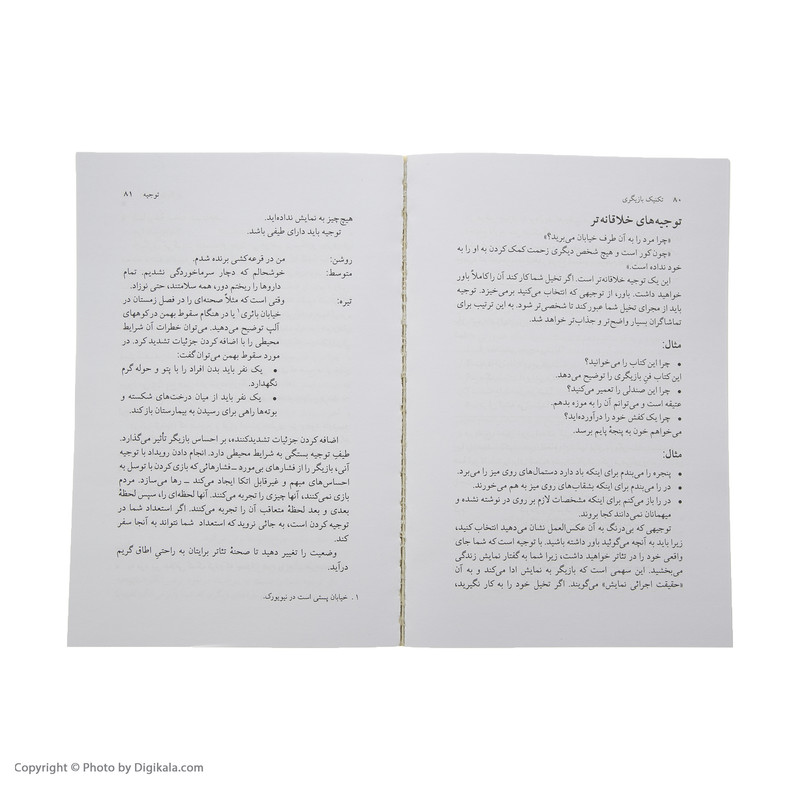 ۸۰ تکنیک بازیگری
توجیه‌های خلاقانه‌تر
«چرا مرد را به آن طرف خیابان می‌برید؟»
«چون کور است و هیچ شخص دیگری زحمت کمک کردن به او را به
خود نداده است.»
این یک توجیه خلاقانه‌تر است. اگر تخیل شما کار کند آن را کاملاً باور
خواهید داشت. باور، از توجیهی که انتخاب می‌کنید برمی‌خیزد. توجیه
باید از مجرای تخیل شما عبور کند تا شخصی‌تر شود. به این ترتیب برای
تماشاگران بسیار واضح‌تر و جذاب‌تر خواهد شد.
مثال:
• چرا این کتاب را می‌خوانید؟
این کتاب فنِ بازیگری را توضیح می‌دهد.
• چرا این صندلی را تعمیر می‌کنید؟
عتیقه است و می‌توانم آن را به موزه بدهم.
• چرا یک کفش خود را درآورده‌اید؟
می‌خواهم خون به پنجهٔ پایم برسد.
مثال:
• پنجره را می‌بندم برای اینکه باد دارد دستمال‌های روی میز را می‌برد.
• در را می‌بندم برای اینکه بشقاب‌های روی میز به هم می‌خورند.
• در را باز می‌کنم برای اینکه مشخصات لازم بر روی در نوشته نشده و
میهمانان نمی‌دانند کجا بروند.
توجیهی که بی‌درنگ به آن عکس‌العمل نشان می‌دهید انتخاب کنید،
زیرا باید به آنچه می‌گوئید باور داشته باشید. با توجیه است که شما جای
واقعی خود را در تئاتر خواهید داشت، زیرا شما به گفتار نمایش زندگی
می‌بخشید. این سهمی است که بازیگر به نمایش ادا می‌کند و به آن
«حقیقت اجرائی نمایش» می‌گویند. اگر تخیل خود را به کار نگیرید،
توجیه ۸۱
هیچ‌چیز به نمایش نداده‌اید.
توجیه باید دارای طیفی باشد.
روشن: من در قرعه‌کشی برنده شدم.
متوسط: خوشحالم که دچار سرماخوردگی نشدیم. تمام
داروها را ریختم دور، همه سلامتند، حتی نوزاد.
تیره: وقتی است که مثلاً صحنه‌ای را در فصل زمستان در
خیابان بائری۱ یا در هنگام سقوط بهمن در کوههای
آلپ توضیح می‌دهید. می‌توان خطرات آن شرایط
محیطی را با اضافه کردن جزئیات تشدید کرد. در
مورد سقوط بهمن می‌توان گفت:
• یک نفر باید بدن افراد را با پتو و حوله گرم
نگهدارد.
• یک نفر باید از میان درخت‌های شکسته و
بوته‌ها راهی برای رسیدن به بیمارستان باز کند.
اضافه کردن جزئیات تشدیدکننده، بر احساس بازیگر تأثیر می‌گذارد.
طیف توجیه بستگی به شرایط محیطی دارد. انجام دادن رویداد با توجیه
آنی، بازیگر را از فشارهای بی‌مورد ــ فشارهائی که بازی کردن با توسل به
احساس‌های مبهم و غیرقابل اتکا ایجاد می‌کند ــ رها می‌سازد. مردم
بازی نمی‌کنند، آنها چیزی را تجربه می‌کنند. آنها لحظه‌ای را، سپس لحظهٔ
بعدی و بعد لحظهٔ متعاقب آن را تجربه می‌کنند. اگر استعداد شما در
توجیه کردن است، به جائی نروید که استعداد شما نتواند به آنجا سفر
کند.
وضعیت را تغییر دهید تا صحنهٔ تئاتر برایتان به راحتیِ اطاق گریم
درآید.
۱. خیابان پستی است در نیویورک.
Copyright © Photo by Digikala.com